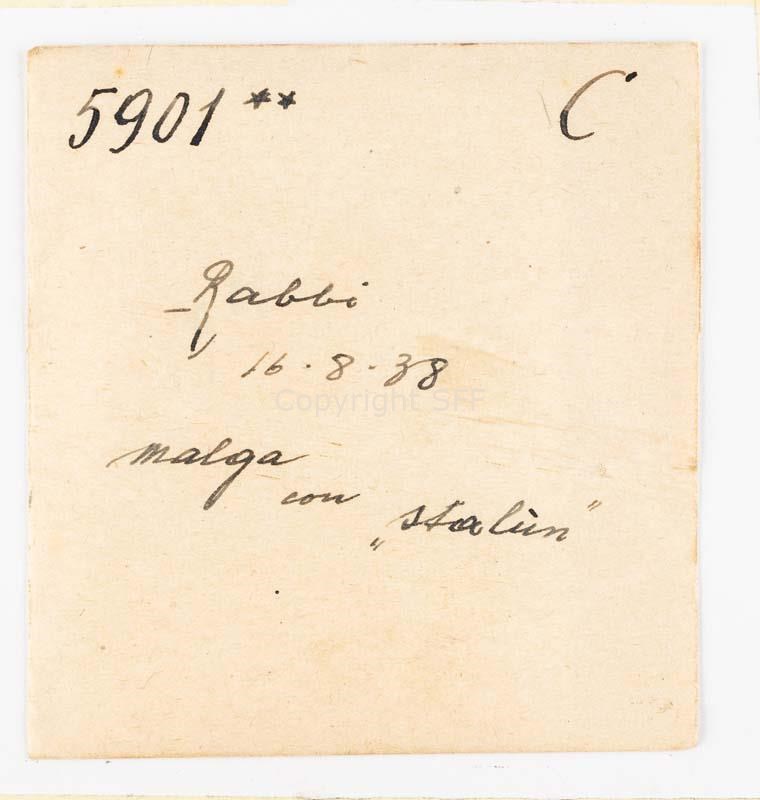 5901 ** C
Rabbi
16.8.38
Copyright SFF
malga
con
„stalùn"